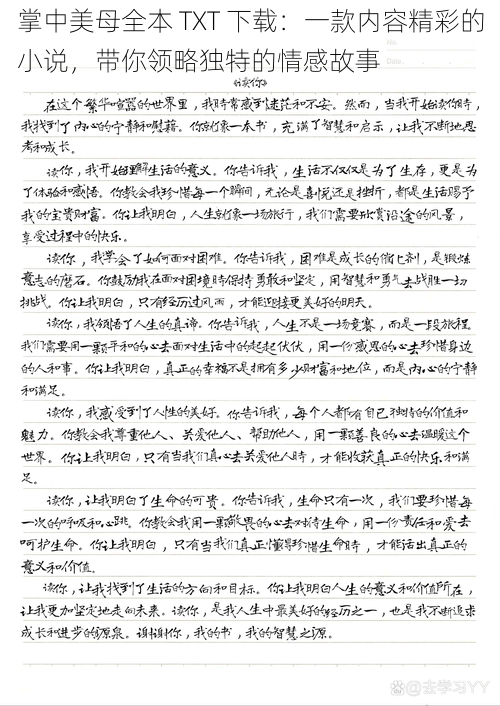 掌中美母全本 TXT 下载：一款内容精彩的
小说，带你领略独特的情感故事
No.
Date
《读你》
在这个繁华喧嚣的世界里，我时常感到迷茫和不安。然而，当我开始读你时，
我找到了内心的宁静和慰藉。你就像一本书，充满了智慧和启示，让我不断地思
考和成长。
读你，我开始理解生活的意义。你告诉我，生活不仅仅是为了生存，更是为
了体验和感悟。你教会我珍惜每一个瞬间，无论是喜悦还是挫折，都是生活赐予
我的宝贵财富。你让我明白，人生就像一场旅行，我们需要欣赏沿途的风景，
享受过程中的快乐。
读你，我学会了如何面对困难。你告诉我，困难是成长的催化剂，是锻炼
意志的磨石。你鼓励我在面对困境时保持勇敢和坚定，用智慧和勇气去战胜一切
挑战。你让我明白，只有经历过风雨，才能迎接更美好的明天。
读你，我领悟了人生的真谛。你告诉我，人生不是一场竞赛，而是一段旅程。
我们需要用一颗平和的心去面对生活中的起起伏伏，用一份感恩的心去珍惜身边
的人和事。你让我明白，真正的幸福不是拥有多少财富和地位，而是内心的宁静
和满足。
读你，我感受到了人性的美好。你告诉我，每个人都有自己独特的价值和
魅力。你教会我尊重他人、关爱他人、帮助他人，用一颗善良的心去温暖这个
世界。你让我明白，只有当我们真心去关爱他人时，才能收获真正的快乐和满
足。
读你，让我明白了生命的可贵。你告诉我，生命只有一次，我们要珍惜每
一次的呼吸和心跳。你教会我用一颗敬畏的心去对待生命，用一份责任和爱去
呵护生命。你让我明白，只有当我们真正懂得珍惜生命时，才能活出真正的
意义和价值。
读你，让我找到了生活的方向和目标。你让我明白人生的意义和价值所在，
让我更加坚定地走向未来。读你，是我人生中最美好的经历之一，也是我不断追求
成长和进步的源泉。谢谢你，我的书，我的智慧之源。
@去学习YY